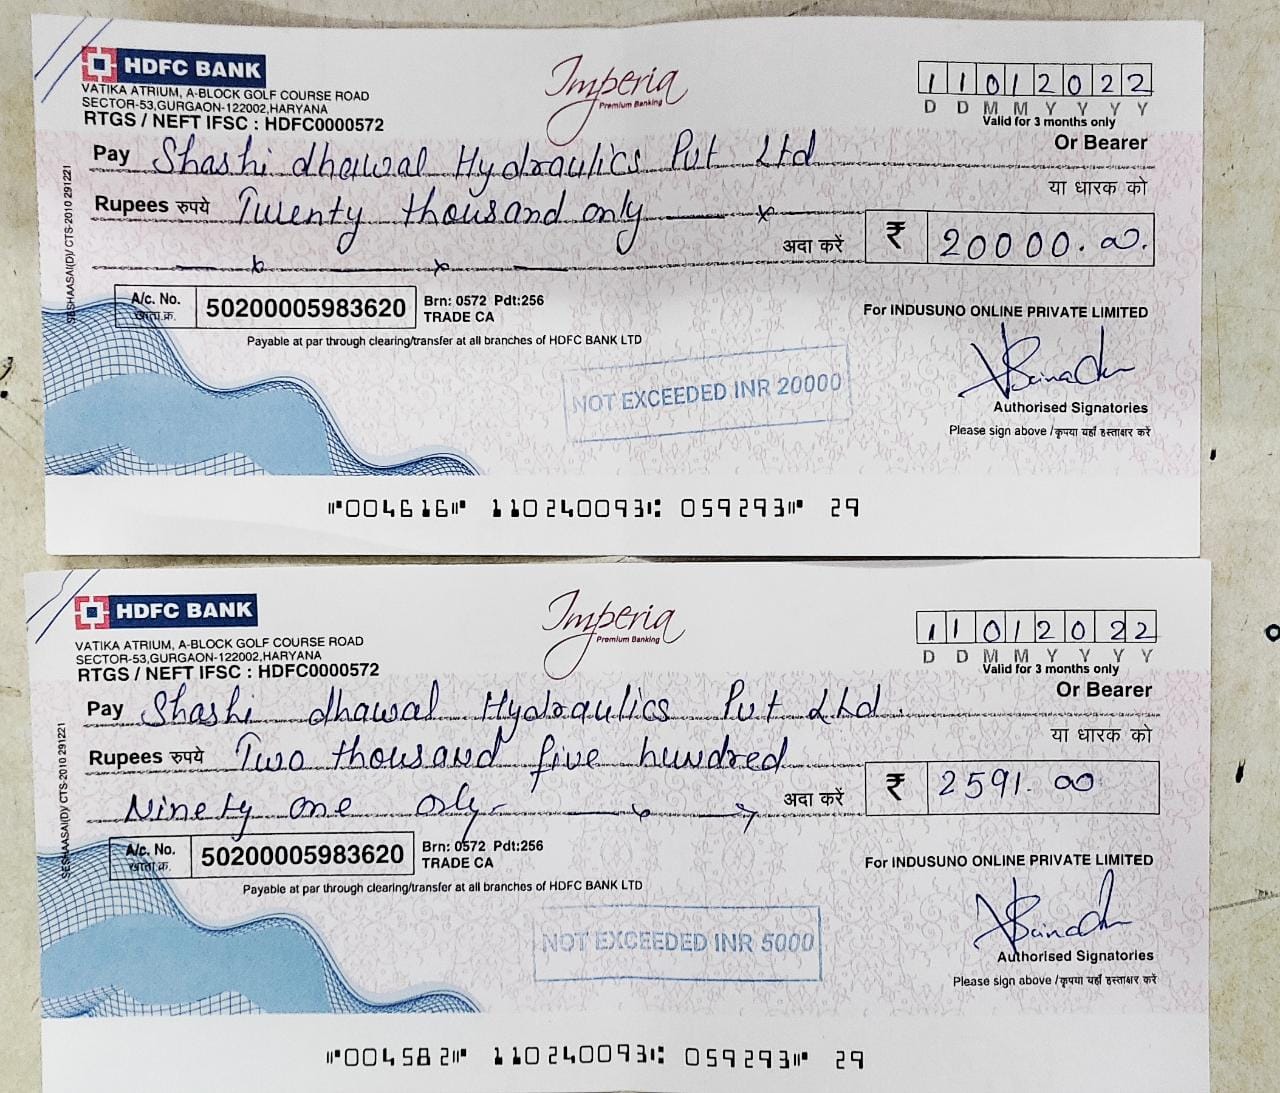 HDFC BANK
VATIKA ATRIUM, A-BLOCK GOLF COURSE ROAD
SECTOR-53,GURGAON-122002,HARYANA
RTGS / NEFT IFSC : HDFC0000572
Imperia
Premium Banking
11012022
D D M M Y Y Y Y
Valid for 3 months only
Pay Shashi dhawal Hydraulics Pvt Ltd Or Bearer
या धारक को
Rupees रुपये Twenty thousand only
अदा करें ₹ 20000.00.
A/c. No. खाता.क्र. 50200005983620 Brn: 0572 Pdt:256
TRADE CA
Payable at par through clearing/transfer at all branches of HDFC BANK LTD
For INDUSUNO ONLINE PRIVATE LIMITED
NOT EXCEEDED INR 20000
Authorised Signatories
Please sign above /कृपया यहाँ हस्ताक्षर करें
SESHAASAI(D)/ CTS-2010 291221
⑈004616⑈ 110240093⑆ 059293⑈ 29
HDFC BANK
VATIKA ATRIUM, A-BLOCK GOLF COURSE ROAD
SECTOR-53,GURGAON-122002,HARYANA
RTGS / NEFT IFSC : HDFC0000572
Imperia
Premium Banking
11012022
D D M M Y Y Y Y
Valid for 3 months only
Pay Shashi dhawal Hydraulics Pvt Ltd. Or Bearer
या धारक को
Rupees रुपये Two thousand five hundred
Ninety one only अदा करें ₹ 2591.00
A/c. No. खाता.क्र. 50200005983620 Brn: 0572 Pdt:256
TRADE CA
Payable at par through clearing/transfer at all branches of HDFC BANK LTD
For INDUSUNO ONLINE PRIVATE LIMITED
NOT EXCEEDED INR 5000
Authorised Signatories
Please sign above /कृपया यहाँ हस्ताक्षर करें
SESHAASAI(D)/ CTS-2010 291221
⑈004582⑈ 110240093⑆ 059293⑈ 29